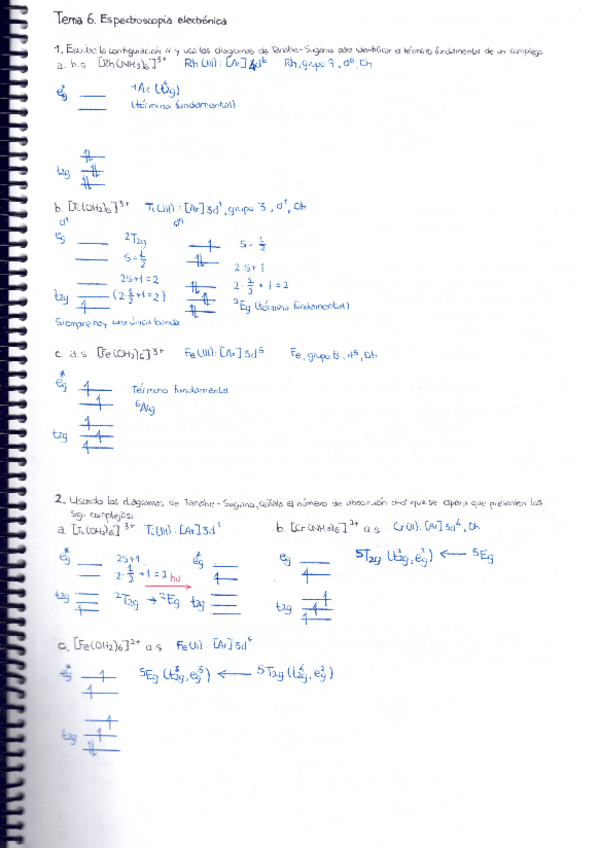 Tema 6. Espectroscopía electrónica
1. Escribe la configuración e⁻ y usa los diagramas de Tanabe-Sugano para identificar el término fundamental de un complejo
a. b.s [Rh(NH₃)₆]³⁺ Rh(III): [Ar] 4d⁶ Rh, grupo 9, d⁶, Oh
eg* ¹A₁ (t⁶₂g)
(término fundamental)
t₂g
b. [Ti(OH₂)₆]³⁺ Ti(III): [Ar] 3d¹, grupo 3, d¹, Oh
d¹ d⁹
eg ²T₂g S=½
S=½ 2·S+1
2S+1=2 2·½+1=2
t₂g (2·½+1=2) ²Eg (término fundamental)
Siempre hay una única banda
c. a.s [Fe(OH₂)₆]³⁺ Fe(III): [Ar] 3d⁵ Fe, grupo 8, d⁵, Oh
eg* Término fundamental
⁶A₁g
t₂g
2. Usando los diagramas de Tanabe-Sugano, señala el número de absorción que se espera que presenten los
sig. complejos:
a. [Ti(OH₂)₆]³⁺ Ti(III): [Ar] 3d¹ b. [Cr(NH₃)₆]²⁺ a.s Cr(II): [Ar] 3d⁴, Oh
eg* 2S+1 eg* eg 5T₂g (t²₂g, eg²) ← ⁵Eg
2·½+1=2 hν
t₂g ²T₂g → ²Eg t₂g t₂g
c. [Fe(OH₂)₆]²⁺ a.s Fe(II): [Ar] 3d⁶
eg* ⁵Eg (t³₂g, eg³) ← 5T₂g (t⁴₂g, eg²)
t₂g